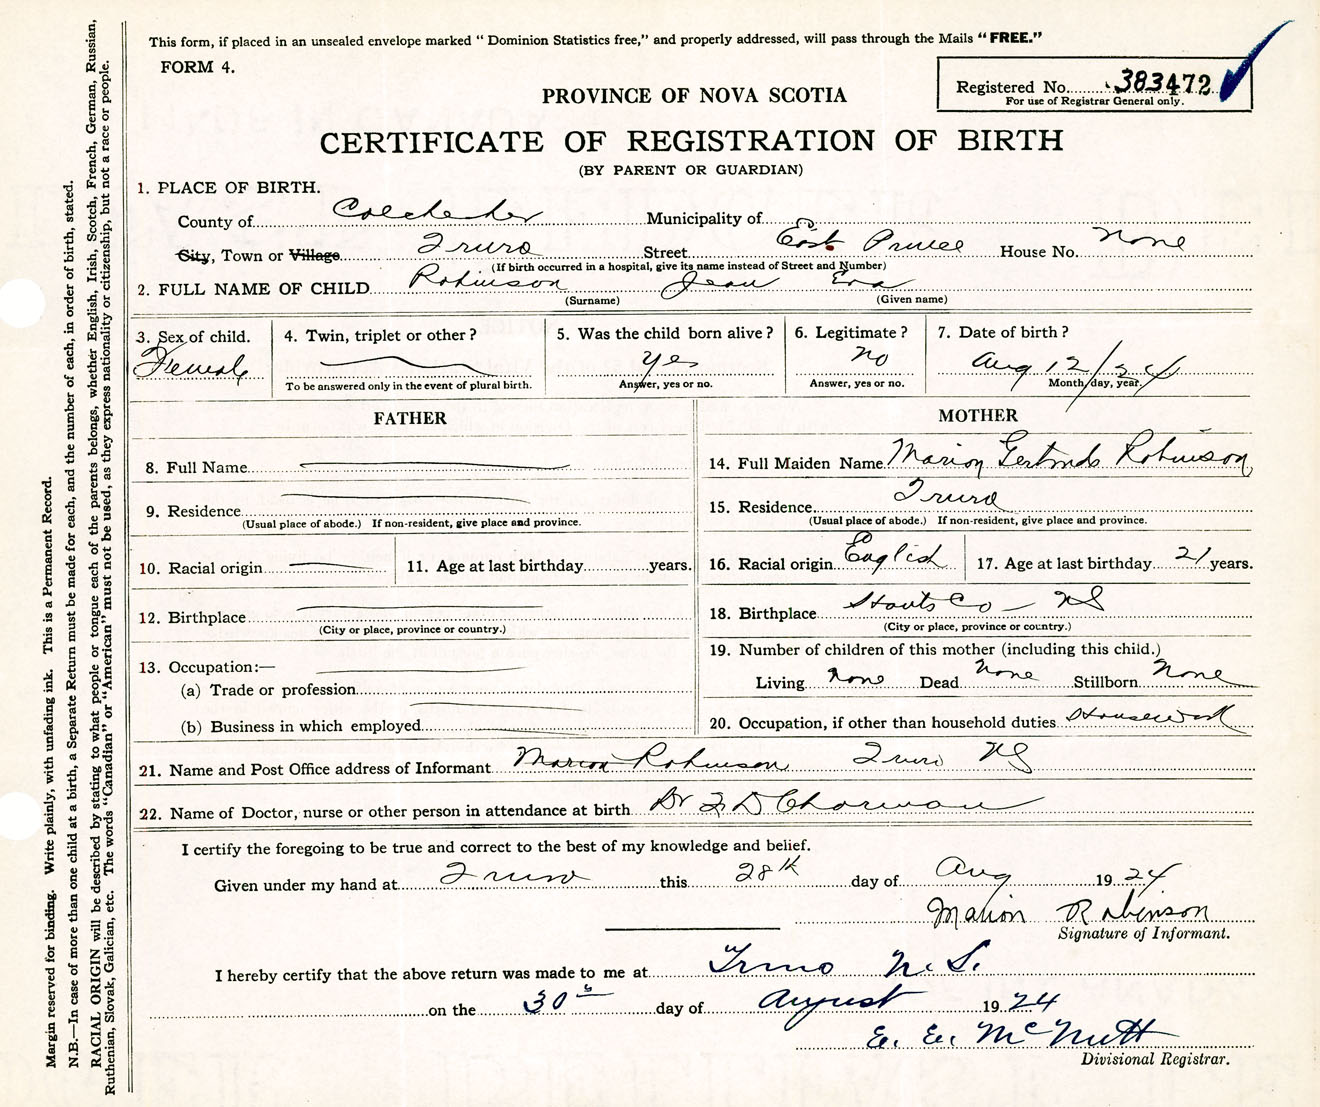 This form, if placed in an unsealed envelope marked “ Dominion Statistics free,” and properly addressed, will pass through the Mails “ FREE.”
FORM 4.
Registered No. 383472
For use of Registrar General only.
PROVINCE OF NOVA SCOTIA
CERTIFICATE OF REGISTRATION OF BIRTH
(BY PARENT OR GUARDIAN)
1. PLACE OF BIRTH.
County of Colchester Municipality of
City, Town or Village Truro Street East Prince House No. None
(If birth occurred in a hospital, give its name instead of Street and Number)
2. FULL NAME OF CHILD Robinson Jean
(Surname) (Given name)
3. Sex of child. 4. Twin, triplet or other? 5. Was the child born alive? 6. Legitimate? 7. Date of birth?
Female yes no Aug 12/24
To be answered only in the event of plural birth. Answer, yes or no. Answer, yes or no. Month, day, year.
FATHER MOTHER
8. Full Name 14. Full Maiden Name Marion Gertrude Robinson
9. Residence 15. Residence Truro
(Usual place of abode.) If non-resident, give place and province. (Usual place of abode.) If non-resident, give place and province.
10. Racial origin 11. Age at last birthday years. 16. Racial origin English 17. Age at last birthday 21 years.
12. Birthplace 18. Birthplace Hants Co — NS
(City or place, province or country.) (City or place, province or country.)
13. Occupation:— 19. Number of children of this mother (including this child.)
(a) Trade or profession Living None Dead None Stillborn None
(b) Business in which employed 20. Occupation, if other than household duties Housework
21. Name and Post Office address of Informant Marion Robinson Truro NS
22. Name of Doctor, nurse or other person in attendance at birth Dr
I certify the foregoing to be true and correct to the best of my knowledge and belief.
Given under my hand at Truro this 28th day of Aug 1924
Marion Robinson
Signature of Informant.
I hereby certify that the above return was made to me at Truro N.S.
on the 30th day of August 1924
E. E. McNutt
Divisional Registrar.
Margin reserved for binding. Write plainly, with unfading ink. This is a Permanent Record.
N.B.—In case of more than one child at a birth, a Separate Return must be made for each, and the number of each, in order of birth, stated.
RACIAL ORIGIN will be described by stating to what people or tongue each of the parents belongs, whether English, Irish, Scotch, French, German, Russian,
Ruthenian, Slovak, Galician, etc. The words “Canadian” or “American” must not be used, as they express nationality or citizenship, but not a race or people.